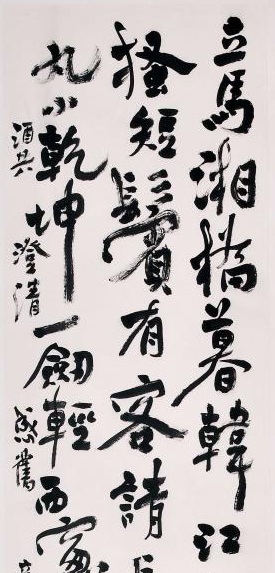 立馬湘橋暮韓江
搔短鬢有客請
丸小乾坤一劍輕西窗
酒共澄清感舊